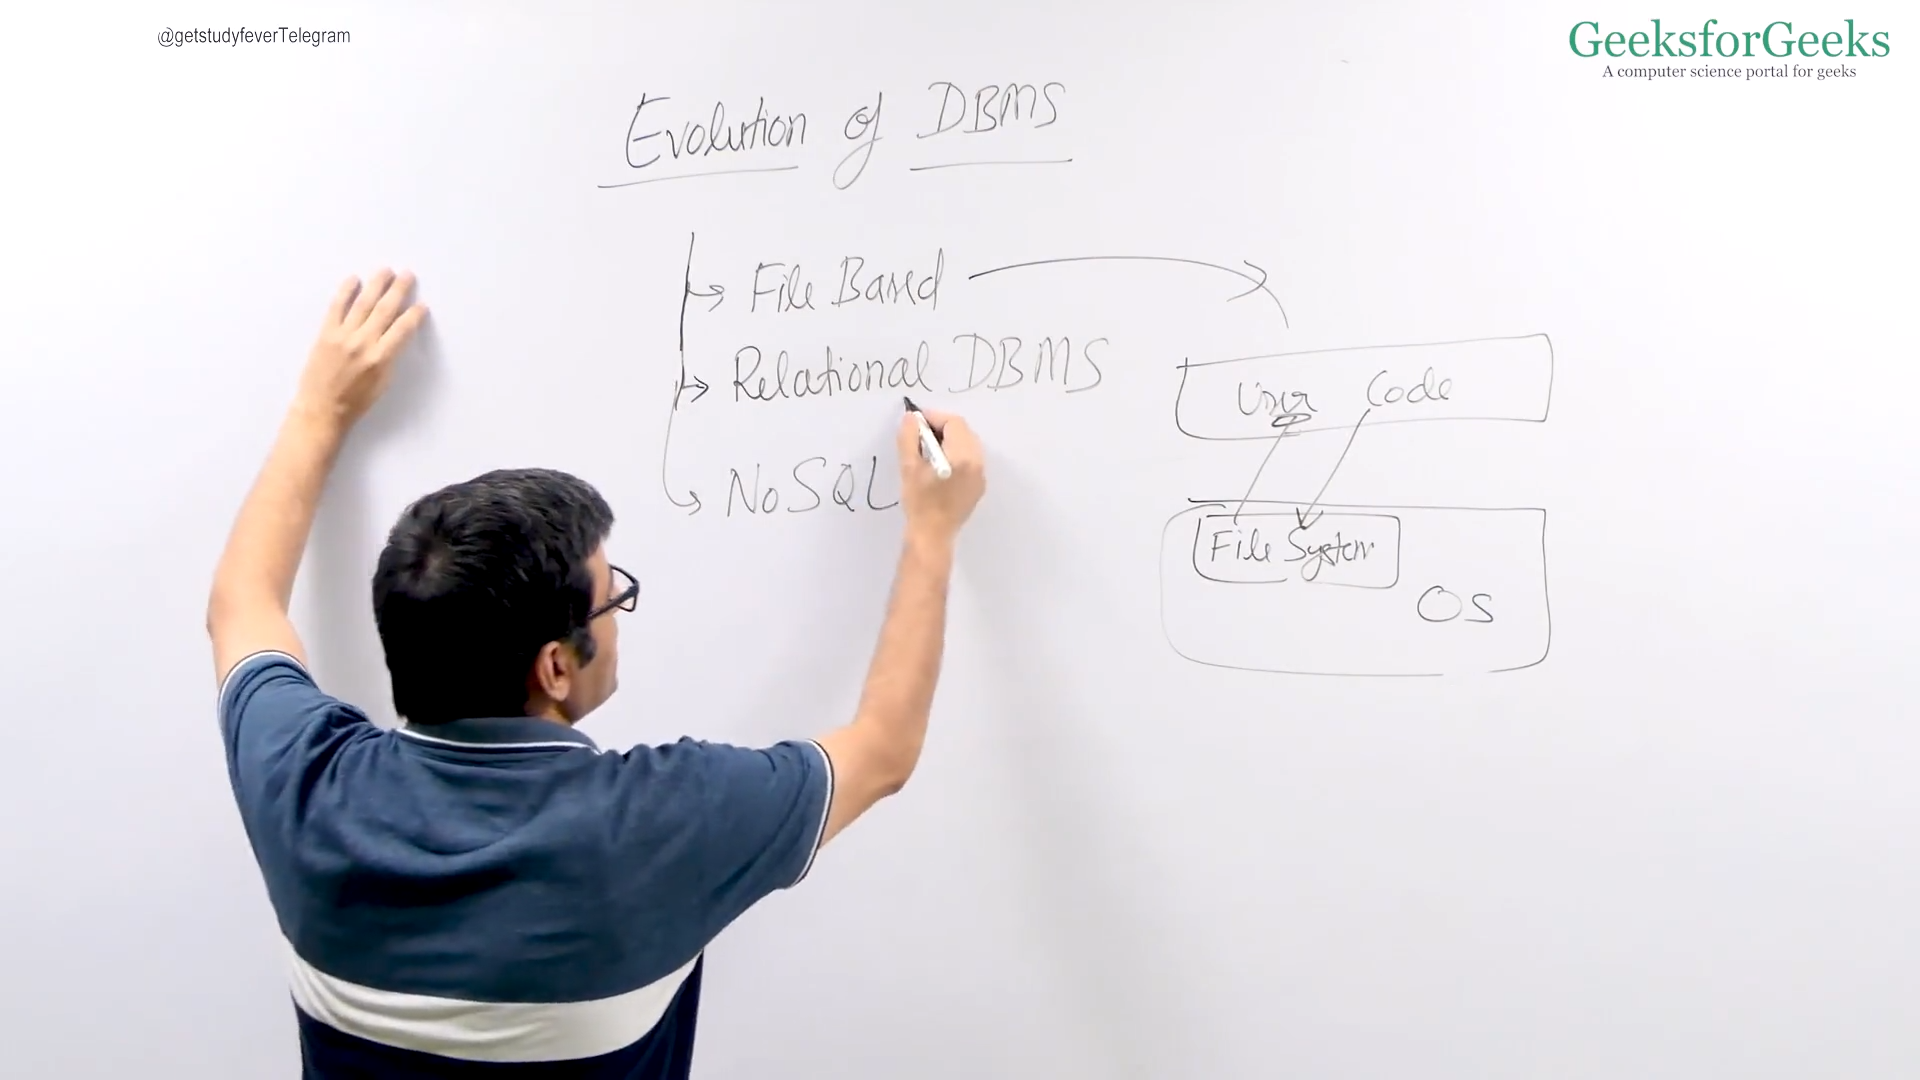 @getstudyfeverTelegram
GeeksforGeeks
A computer science portal for geeks
Evolution of DBMS
File Based
Relational DBMS
NoSQL
User Code
File System
OS